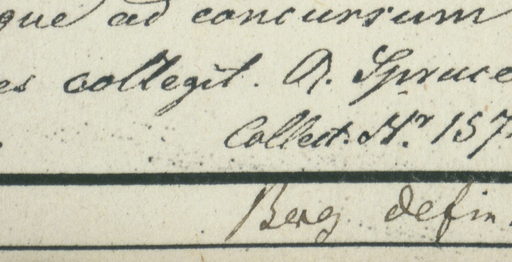 que ad concursum
es collegit. R. Spruce
Collect. Nr. 157
Berg defin.